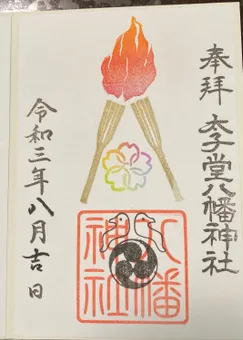 奉拝
太子堂八幡神社
八幡
神社
令和三年八月吉日